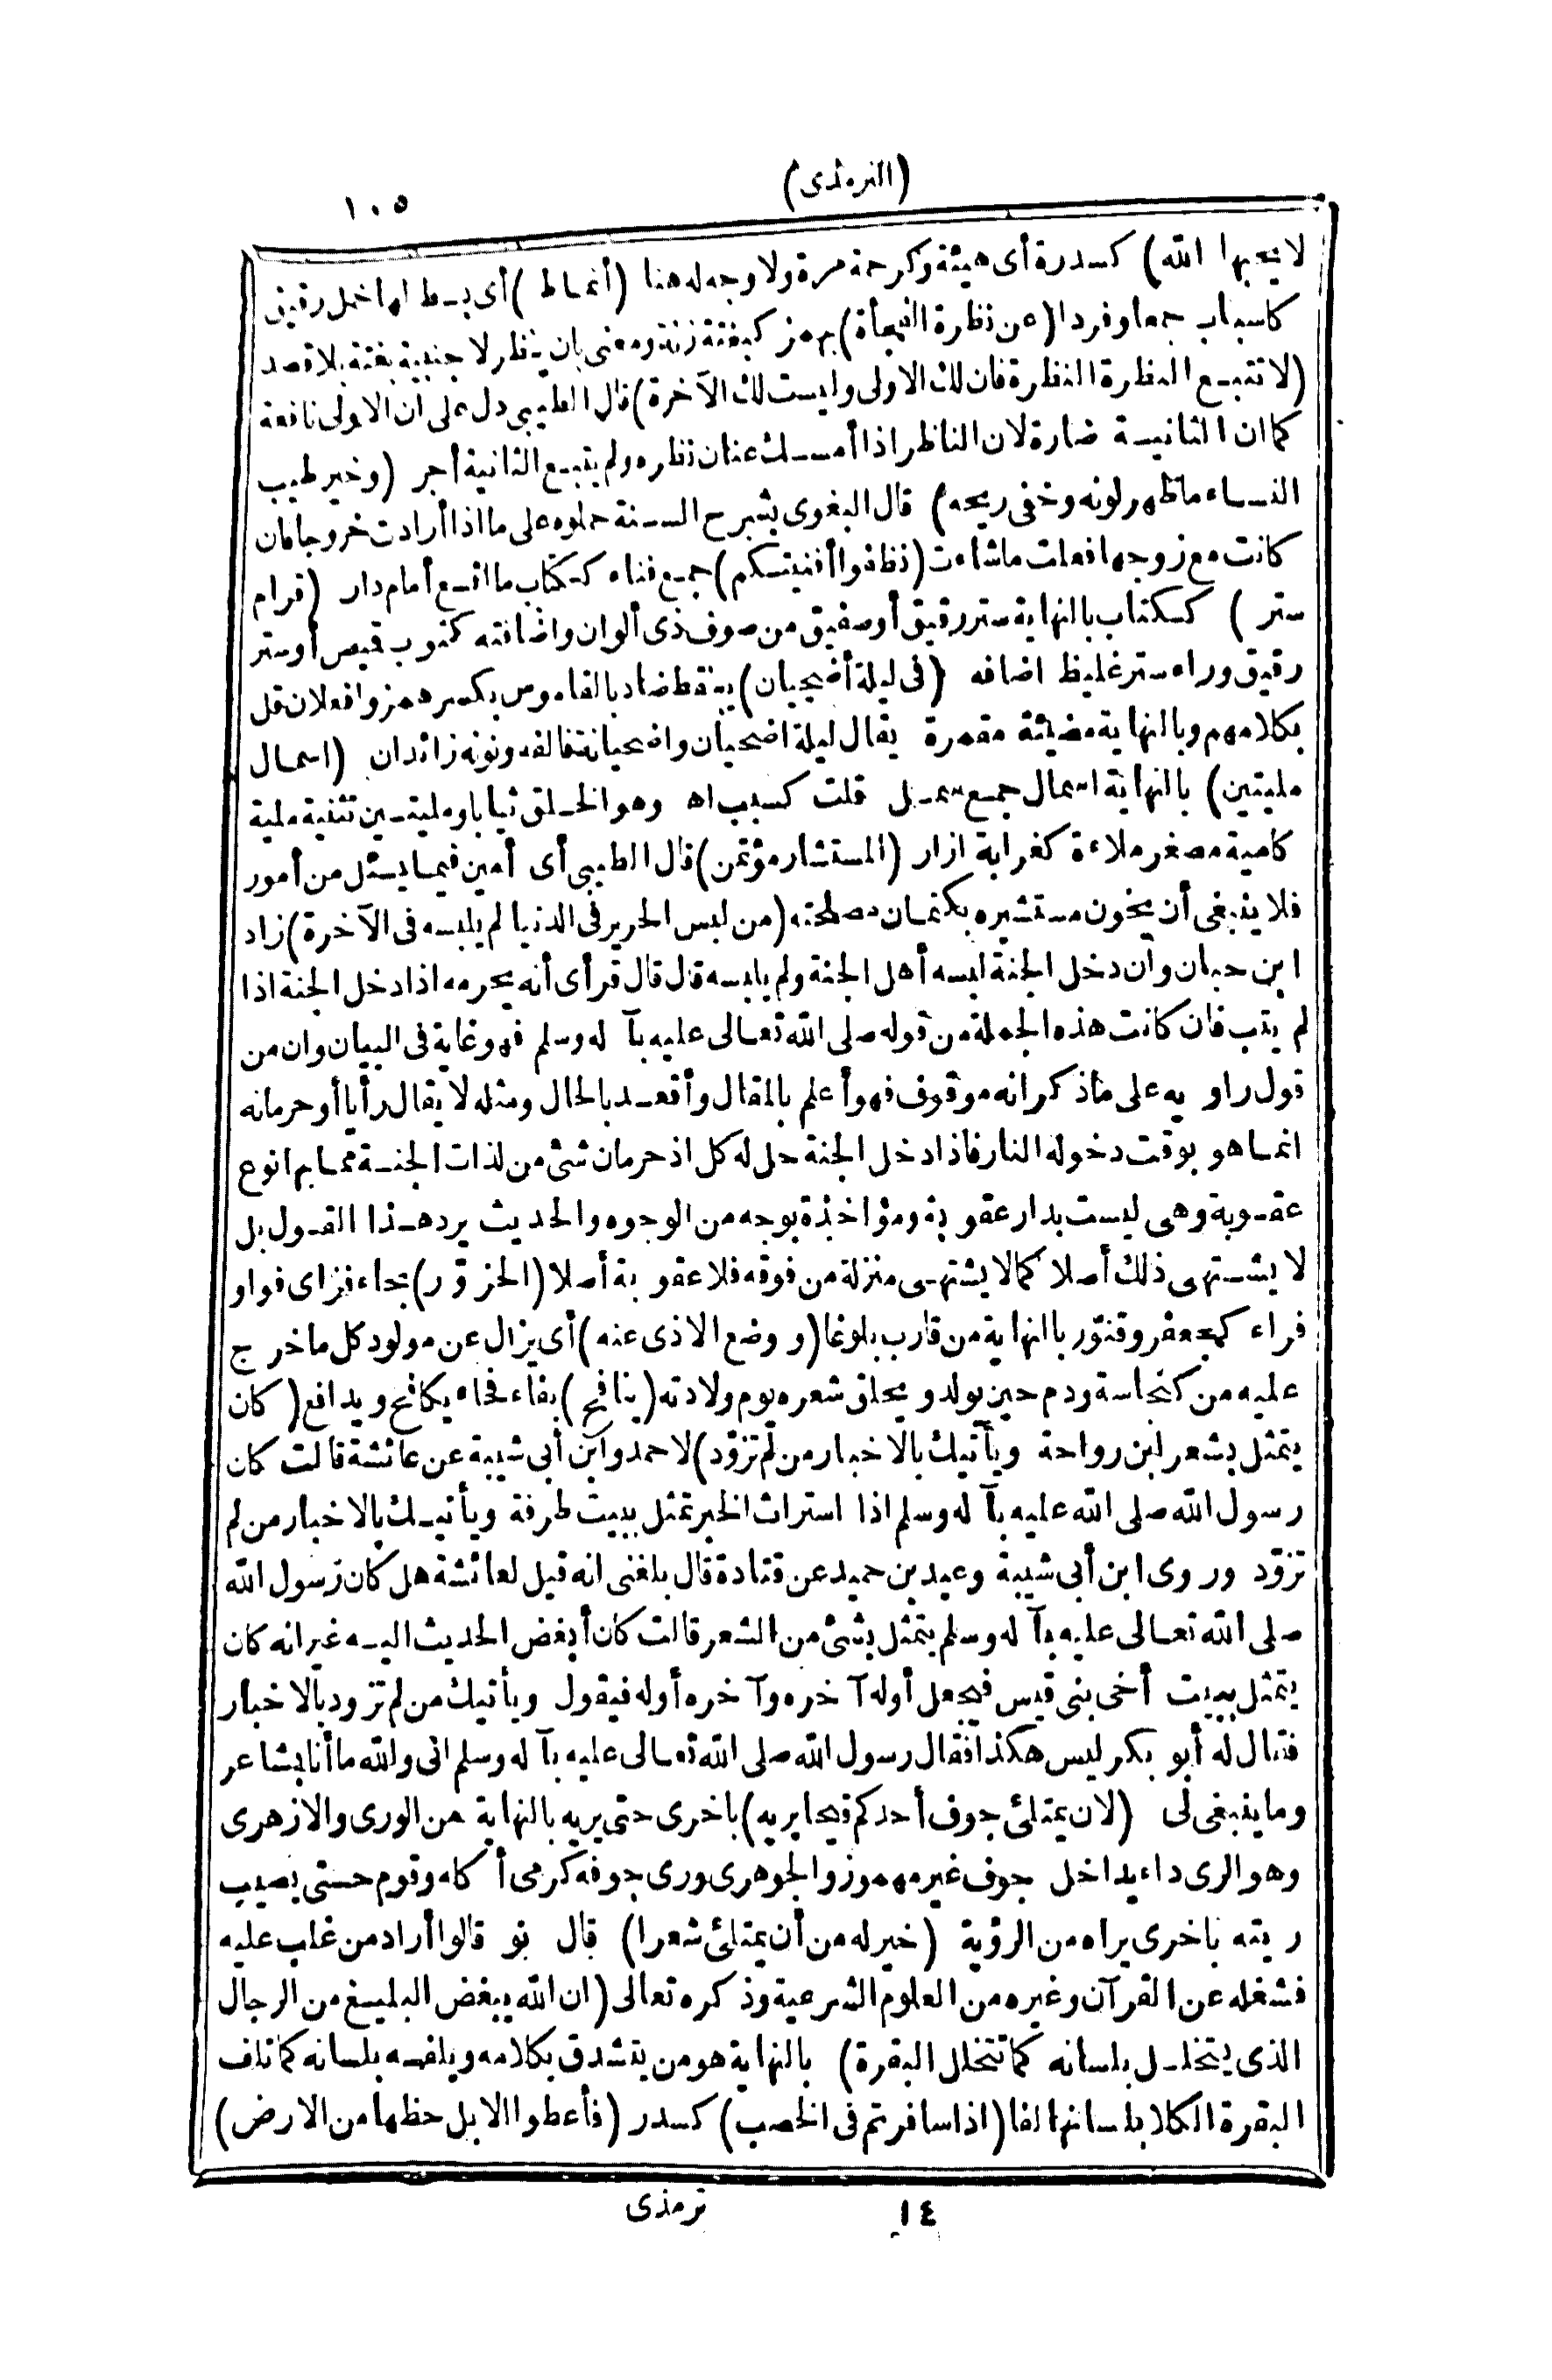 (الترمذى)
١٠٥
لا يحبها الله) كسدرة أى هيئة وكرحمة مرة ولا وجه له هنا (أنماط) أى بسط لها خمل رقيق
كاسباب جمعا وفردا (عن نظرة الفجأة) بهمز كبغتة زنة ومعنى بان ينظر لاجنبية بغتة بلا قصد
(لا تتبع النظرة النظرة فان لك الاولى وليست لك الآخرة) قال الطيبى دل على ان الاولى نافعة
كما ان الثانية ضارة لان الناظر اذا أمسك عنان نظره ولم يتبع الثانية أجر (وخير طيب
النساء ما ظهر لونه وخفى ريحه) قال البغوى بشرح السنة حملوه على ما اذا أرادت خروجا فان
كانت مع زوجها فعلت ما شاءت (نظفوا أفنيتكم) جمع فناء ككتاب ما اتسع أمام دار (قرام
ستر) ككتاب بالنهاية ستر رقيق أو صفيق من صوف ذى ألوان واضافته كثوب قميص أو ستر
رقيق وراء ستر غليظ اضافه (فى ليلة أضحيان) بنقط ضاد بالقاموس بكسر همز وافعلان قل
بكلامهم وبالنهاية مضيئة مقمرة يقال ليلة اضحيان واضحيانة فالفه ونونه زائدان (اسمال
مليتين) بالنهاية اسمال جمع سمل قلت كسبب اه وهو الخلق ثيابا ومليتين تثنية ملية
كامية مصغر ملاءة كغرابة ازار (المستشار مؤتمن) قال الطيبى أى أمين فيما يسئل من أمور
فلا ينبغى أن يخون مستشيره بكتمان مصلحته (من لبس الحرير فى الدنيا لم يلبسه فى الآخرة) زاد
ابن حبان وان دخل الجنة لبسه أهل الجنة ولم يلبسه قال قال قر أى أنه يحرمه اذا دخل الجنة اذا
لم يتب فان كانت هذه الجملة من قوله صلى الله تعالى عليه بآ له وسلم فهو غاية فى البيان وان من
قول راويه على ما ذكر انه موقوف فهو أعلم بالمقال وأقعد بالحال ومثله لا يقال رأيا أو حرمانه
انما هو بوقت دخوله النار فاذا دخل الجنة حل له كل اذ حرمان شئ من لذات الجنة مما بها نوع
عقوبة وهى ليست بدار عقوبة ومؤاخذة بوجه من الوجوه والحديث يرد هذا القول بل
لا يشتهى ذلك أصلا كما لا يشتهى منزلة من فوقه فلا عقوبة أصلا (الحزوّر) بحاء فزاى فواو
فراء كجعفر وقنوّر بالنهاية من قارب بلوغا (ووضع الاذى عنه) أى يزال عن مولود كل ما خرج
عليه من كنجاسة ودم حين يولد ويحلق شعره يوم ولادته (ينافح) بفاء فحاء يكافح ويدافع (كان
يتمثل بشعر ابن رواحة ويأتيك بالاخبار من لم تزوّد) لاحمد وابن أبى شيبة عن عائشة قالت كان
رسول الله صلى الله عليه بآ له وسلم اذا استراث الخبر تمثل ببيت طرفة ويأتيك بالاخبار من لم
تزوّد وروى ابن أبى شيبة وعبد بن حميد عن قتادة قال بلغنى انه قيل لعائشة هل كان رسول الله
صلى الله تعالى عليه بآ له وسلم يتمثل بشئ من الشعر قالت كان أبغض الحديث اليه غير انه كان
يتمثل ببيت أخى بنى قيس فيجعل أوله آخره وآخره أوله فيقول ويأتيك من لم تزود بالاخبار
فقال له أبو بكر ليس هكذا فقال رسول الله صلى الله تعالى عليه بآ له وسلم انى والله ما أنا بشاعر
وما ينبغى لى (لان يمتلئ جوف أحدكم قيحا يريه) باخرى حتى يريه بالنهاية من الورى والازهرى
وهو الرى داء يداخل جوف غير مهموز والجوهرى ورى جوفه كرمى أكله وقوم حتى يصيب
ريته باخرى يراه من الرؤية (خير له من أن يمتلئ شعرا) قال نو قالوا أراد من غلب عليه
فشغله عن القرآن وغيره من العلوم الشرعية وذكره تعالى (ان الله يبغض البليغ من الرجال
الذى يتخلل بلسانه كما تتخلل البقرة) بالنهاية هو من يتشدق بكلامه ويلفه بلسانه كما تلف
البقرة الكلا بلسانها لفا (اذا سافرتم فى الخصب) كسدر (فأعطوا الابل حظها من الارض)
١٤ ترمذى